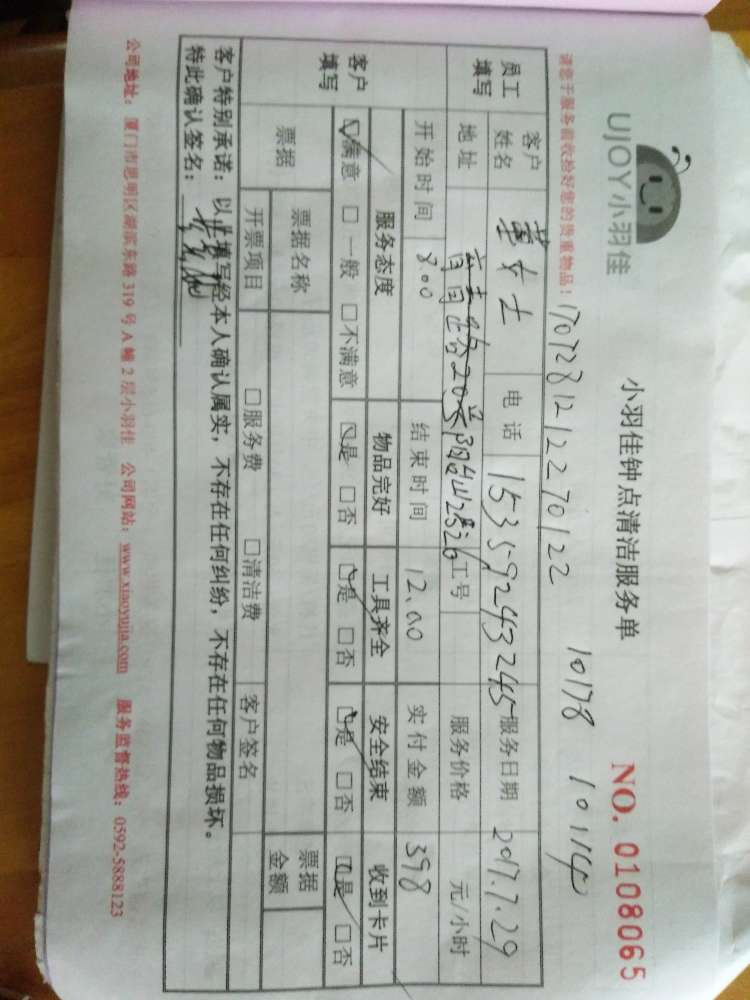 UJOY小羽佳
小羽佳钟点清洁服务单
NO. 0108065
10178 10114
请您于服务前收拾好您的贵重物品!
1707281212270122
员工填写
客户姓名 女士 电话 15359243245 服务日期 2017.7.29
地址 20 2526 工号 服务价格 元/小时
开始时间 8.00 结束时间 12.00 实付金额 398
客户填写
服务态度 物品完好 工具齐全 安全结束 收到卡片
☑满意 □一般 □不满意 ☑是 □否 ☑是 □否 ☑是 □否 ☑是 □否
票据 票据名称 票据金额
开票项目 □服务费 □清洁费 客户签名
客户特别承诺:以上填写经本人确认属实,不存在任何纠纷,不存在任何物品损坏。
特此确认签名:
公司地址:厦门市思明区湖滨东路 319 号 A 幢 2 层小羽佳 公司网站:www.xiaoyujia.com 服务监督热线:0592-5888123